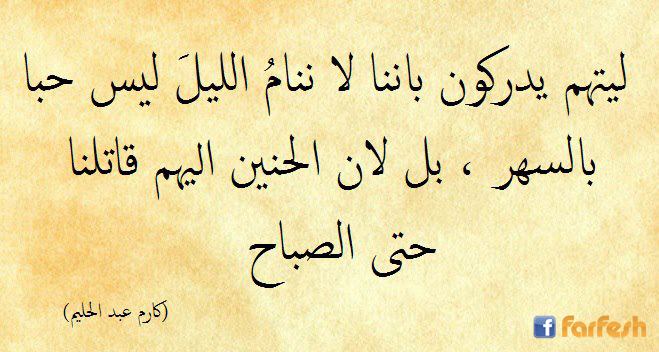 ليتهم يدركون باننا لا ننامُ الليلَ ليس حبا
بالسهر ، بل لان الحنين اليهم قاتلنا
حتى الصباح
(كارم عبد الحليم)
f farfesh